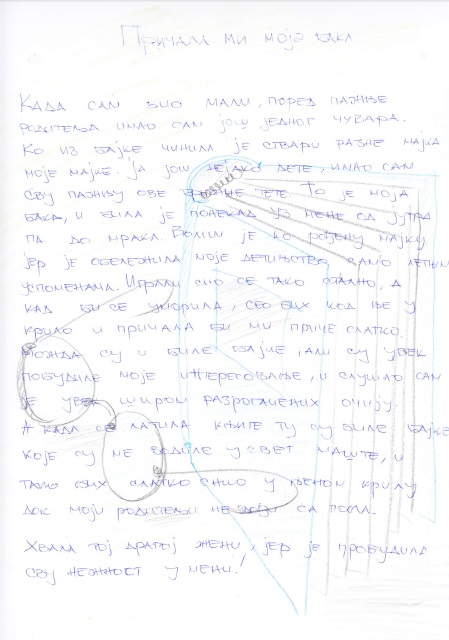 Причала ми моја бака
Када сам био мали, поред пажње
родитеља имао сам још једног чувара.
Ко из бајке чинила је ствари разне мајка
моје мајке. Ја још нејако дете, имао сам
сву пажњу ове тете. То је моја
бака, и била је понекад уз мене од јутра
па до мрака. Волим је ко рођену мајку
јер је обележила моје детињство само лепим
успоменама. Играли смо се тако стално, а
кад би се уморила, сео бих код ње у
крило и причала би ми приче слатко.
Можда су и биле бајке, али су увек
побудиле моје интересовање, и слушао сам
је увек широм разрогачених очију.
А када се латила књиге ту су биле бајке
које су ме водиле у свет маште, и
тако бих слатко снио у њеном крилу
док моји родитељи не дођу са посла.
Хвала тој драгој жени, јер је пробудила
сву нежност у мени!